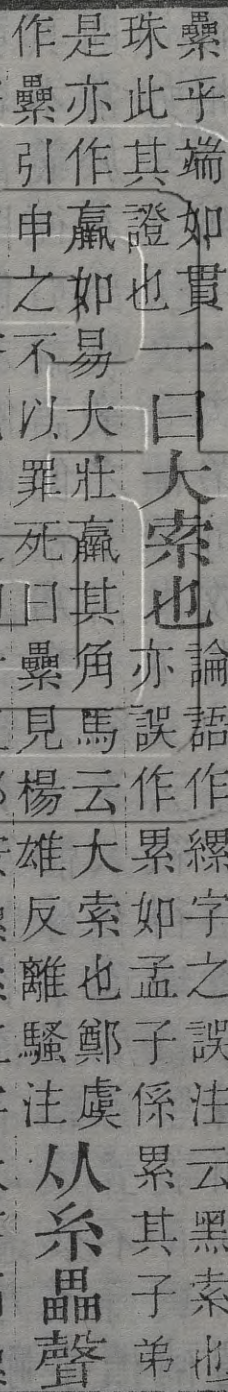 纍乎端如貫
珠此其證也
一曰大索也
論語作縲字之誤注云黑索也
亦誤作累如孟子係累其子弟
是亦作羸如易大壯羸其角馬云大索也鄭虞
作纍引申之不以罪死曰纍見楊雄反離騷注
从糸畾聲